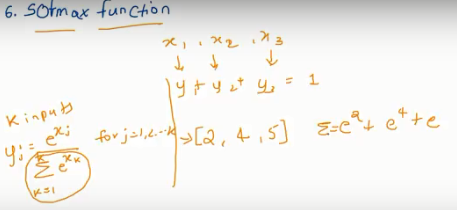 6. SOtmax function
x₁ , x₂ , x₃
↓ ↓ ↓
y₁ + y₂ + y₃ = 1
K inputs
yⱼ = e^xⱼ / Σ e^xₖ for j=1,2...k
k=1
→ [2, 4, 5] Σ=e² + e⁴ + e